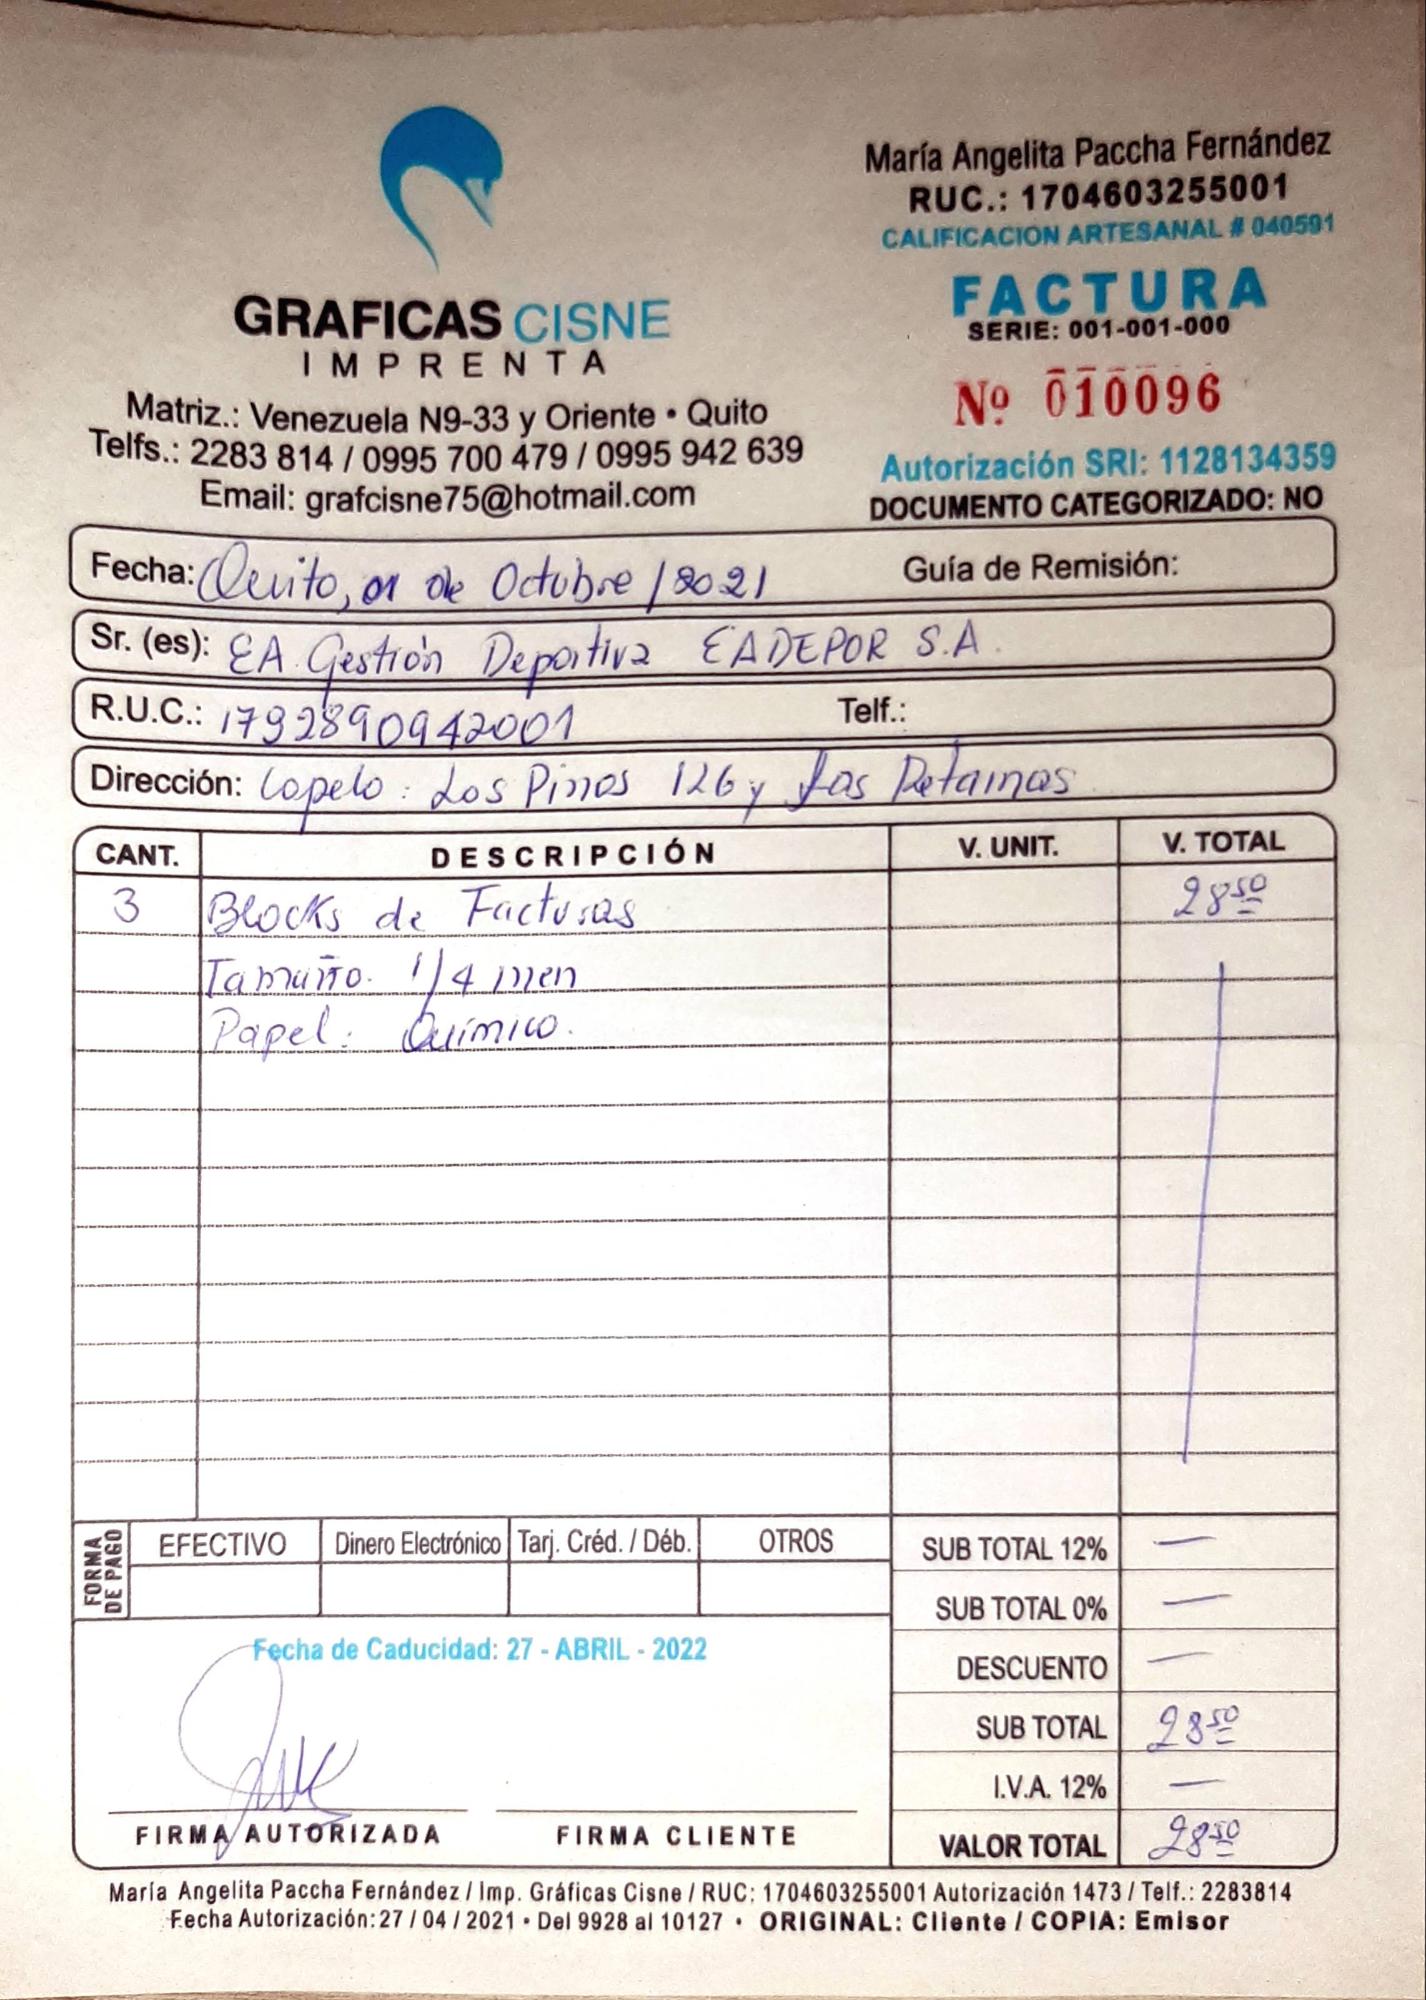 GRAFICAS CISNE
IMPRENTA
Matriz.: Venezuela N9-33 y Oriente • Quito
Telfs.: 2283 814 / 0995 700 479 / 0995 942 639
Email: grafcisne75@hotmail.com
María Angelita Paccha Fernández
RUC.: 1704603255001
CALIFICACION ARTESANAL # 040591
FACTURA
SERIE: 001-001-000
Nº 010096
Autorización SRI: 1128134359
DOCUMENTO CATEGORIZADO: NO
Fecha: Quito, 01 de Octubre / 2021 Guía de Remisión:
Sr. (es): EA Gestión Deportiva EADEPOR S.A.
R.U.C.: 1792890942001 Telf.:
Dirección: Capelo: Los Pinos 126 y Las Retamas
CANT. DESCRIPCIÓN V. UNIT. V. TOTAL
3 Blocks de Facturas 28 50
Tamaño. 1/4 men
Papel: Químico.
FORMA DE PAGO EFECTIVO Dinero Electrónico Tarj. Créd. / Déb. OTROS
SUB TOTAL 12% —
SUB TOTAL 0% —
Fecha de Caducidad: 27 - ABRIL - 2022
DESCUENTO —
SUB TOTAL 28 50
I.V.A. 12% —
FIRMA AUTORIZADA FIRMA CLIENTE
VALOR TOTAL 28 50
María Angelita Paccha Fernández / Imp. Gráficas Cisne / RUC: 1704603255001 Autorización 1473 / Telf.: 2283814
Fecha Autorización: 27 / 04 / 2021 • Del 9928 al 10127 • ORIGINAL: Cliente / COPIA: Emisor